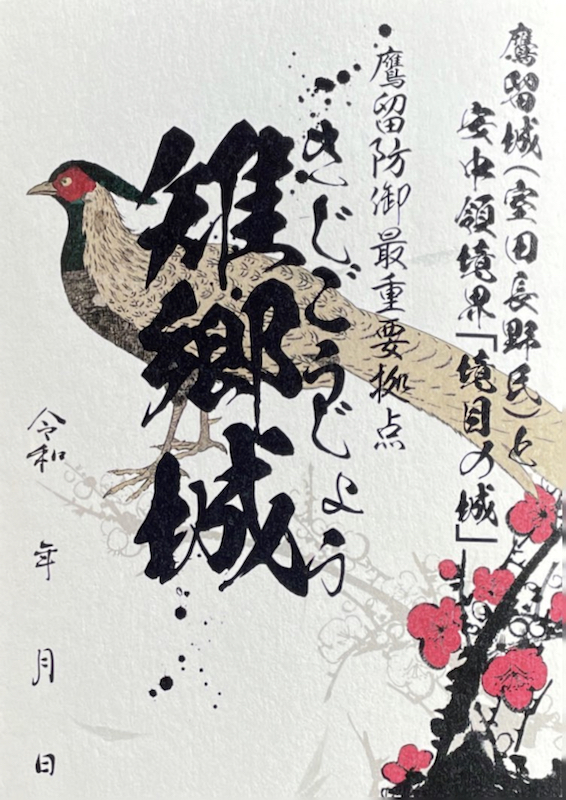 鷹留城(室田長野氏)と
安中領境界「境目の城」
鷹留防御最重要拠点
きじごうじょう
雉郷城
令和 年 月 日